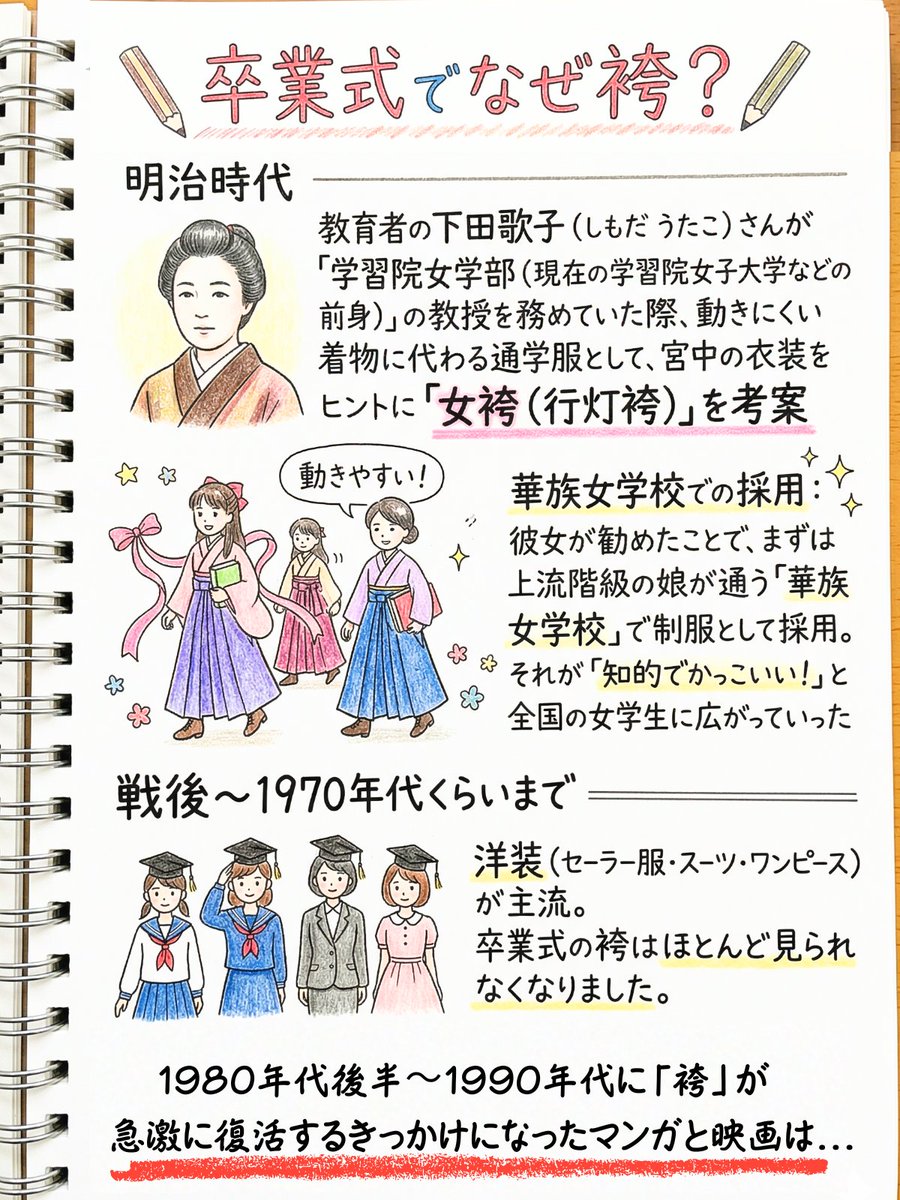 卒業式でなぜ袴？
明治時代
教育者の下田歌子（しもだ うたこ）さんが
「学習院女学部（現在の学習院女子大学などの
前身）」の教授を務めていた際、動きにくい
着物に代わる通学服として、宮中の衣装を
ヒントに「女袴（行灯袴）」を考案
動きやすい！
華族女学校での採用：
彼女が勧めたことで、まずは
上流階級の娘が通う「華族
女学校」で制服として採用。
それが「知的でかっこいい！」と
全国の女学生に広がっていった
戦後～1970年代くらいまで
洋装（セーラー服・スーツ・ワンピース）
が主流。
卒業式の袴はほとんど見られ
なくなりました。
1980年代後半～1990年代に「袴」が
急激に復活するきっかけになったマンガと映画は…